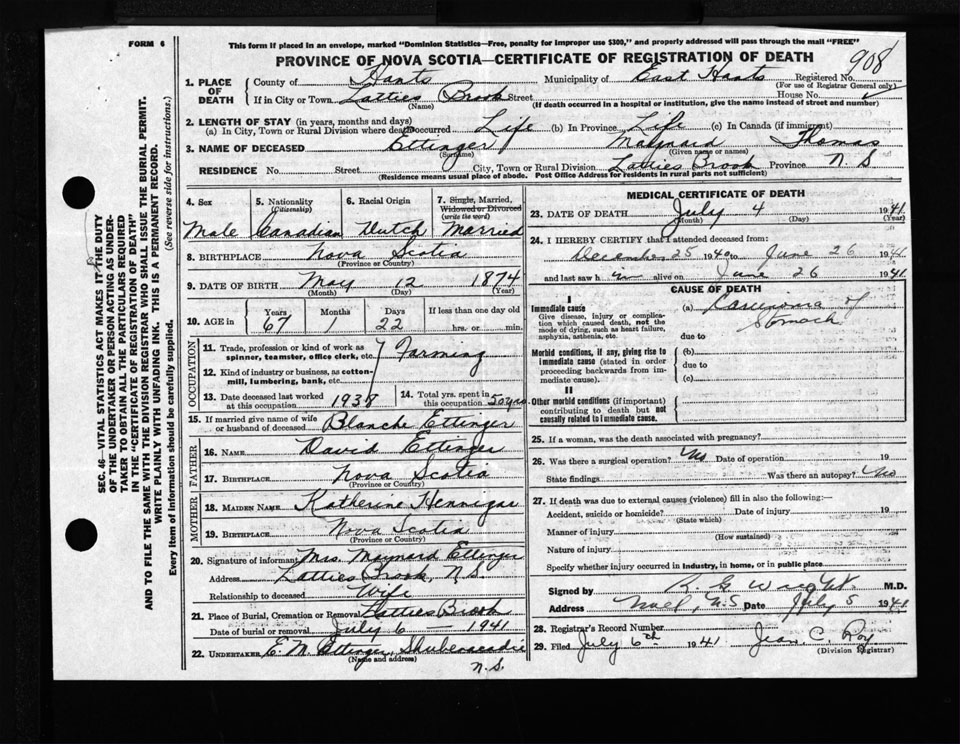 FORM 6
This form if placed in an envelope, marked "Dominion Statistics—Free, penalty for improper use $300," and properly addressed will pass through the mail "FREE"
PROVINCE OF NOVA SCOTIA—CERTIFICATE OF REGISTRATION OF DEATH
908
1. PLACE OF DEATH
County of Hants Municipality of East Hants Registered No.
(For use of Registrar General only)
If in City or Town Latties Brook Street House No.
(Name) (If death occurred in a hospital or institution, give the name instead of street and number)
2. LENGTH OF STAY (in years, months and days)
(a) In City, Town or Rural Division where death occurred Life (b) In Province Life (c) In Canada (if immigrant)
3. NAME OF DECEASED Ettinger Maynard Thomas
(Surname) (Given name or names)
RESIDENCE No. Street City, Town or Rural Division Latties Brook Province N S
(Residence means usual place of abode. Post Office Address for residents in rural parts not sufficient)
4. Sex Male
5. Nationality (Citizenship) Canadian
6. Racial Origin Dutch
7. Single, Married, Widowed or Divorced (write the word) Married
8. BIRTHPLACE Nova Scotia
(Province or Country)
9. DATE OF BIRTH May 12 1874
(Month) (Day) (Year)
10. AGE in Years 67 Months 1 Days 22 If less than one day old hrs. or min.
OCCUPATION
11. Trade, profession or kind of work as spinner, teamster, office clerk, etc. Farming
12. Kind of industry or business, as cotton-mill, lumbering, bank, etc.
13. Date deceased last worked at this occupation 1938
14. Total yrs. spent in this occupation 50 yrs.
15. If married give name of wife or husband of deceased Blanche Ettinger
FATHER
16. NAME David Ettinger
17. BIRTHPLACE Nova Scotia
(Province or Country)
MOTHER
18. MAIDEN NAME Katherine Hennigar
19. BIRTHPLACE Nova Scotia
(Province or Country)
20. Signature of informant Mrs. Maynard Ettinger
Address Latties Brook, N.S.
Relationship to deceased Wife
21. Place of Burial, Cremation or Removal Latties Brook
Date of burial or removal July 6 — 1941
22. UNDERTAKER E. M. Ettinger, Shubenacadie
(Name and address) N.S.
MEDICAL CERTIFICATE OF DEATH
23. DATE OF DEATH July 4 1941
(Month) (Day) (Year)
24. I HEREBY CERTIFY that I attended deceased from:
December 25 1940 to June 26 1941
and last saw h im alive on June 26 1941
CAUSE OF DEATH
I
Immediate cause
Give disease, injury or complication which caused death, not the mode of dying, such as heart failure, asphyxia, asthenia, etc.
(a) Carcinoma of Stomach
due to
Morbid conditions, if any, giving rise to immediate cause (stated in order proceeding backwards from immediate cause).
(b)
due to
(c)
II
Other morbid conditions (if important) contributing to death but not causally related to immediate cause.
25. If a woman, was the death associated with pregnancy?
26. Was there a surgical operation? No Date of operation 19
State findings Was there an autopsy? No
27. If death was due to external causes (violence) fill in also the following:—
Accident, suicide or homicide? Date of injury 19
(State which)
Manner of injury
(How sustained)
Nature of injury
Specify whether injury occurred in Industry, in home, or in public place
Signed by R G Wright M.D.
Address Noel, N.S Date July 5 1941
28. Registrar's Record Number
29. Filed July 6th 1941 Jean C. Roy
(Division Registrar)
SEC. 46—VITAL STATISTICS ACT MAKES IT THE DUTY
OF THE UNDERTAKER OR PERSON ACTING AS UNDER-
TAKER TO OBTAIN ALL THE PARTICULARS REQUIRED
IN THE "CERTIFICATE OF REGISTRATION OF DEATH"
AND TO FILE THE SAME WITH THE DIVISION REGISTRAR WHO SHALL ISSUE THE BURIAL PERMIT.
WRITE PLAINLY WITH UNFADING INK. THIS IS A PERMANENT RECORD.
Every item of information should be carefully supplied. (See reverse side for instructions.)